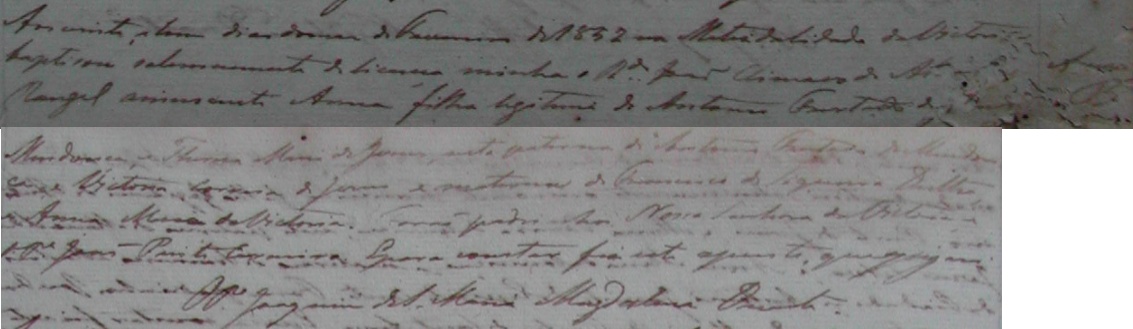 Aos vinte, e tres dias do mez de Fevereiro de 1852 na Matriz da Cidade da Victoria
baptisou solemnemente de licença minha o Rdo. José
Rangel a innocente Anna filha legitima de Antonio Furtado de
Mendonça, e Thereza Maria de Jesus, neta paterna de Antonio Furtado de Mendon
ça e Victoria Correia de Jesus e materna de Francisco de Siqueira
e Anna Maria da Victoria. Forão padrinhos Nossa Senhora da Victoria
e João Pinto E para constar fis este assento, que assignei
Joaquim de S. Maria Magdalena Duarte